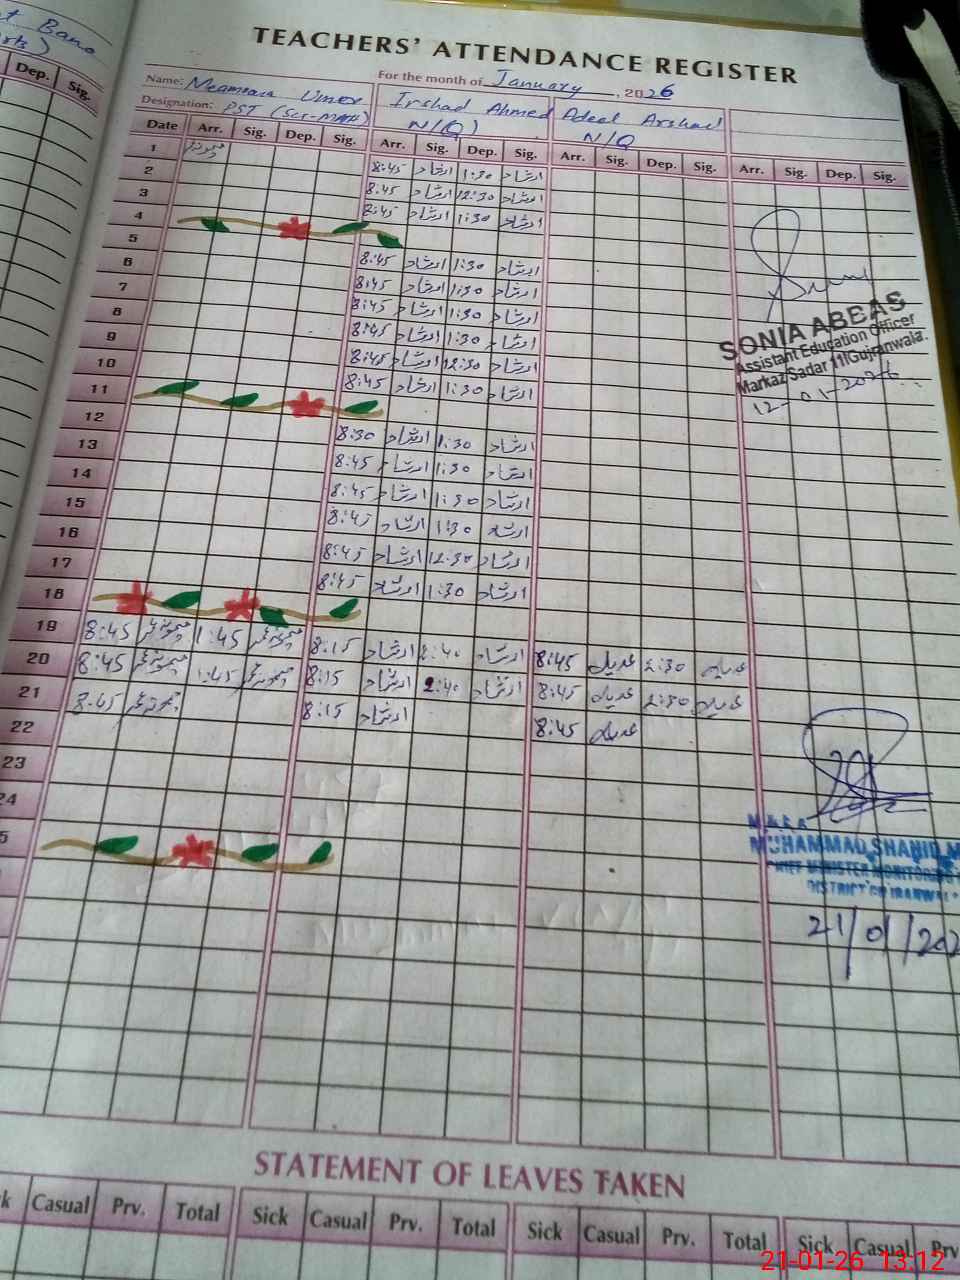 TEACHERS' ATTENDANCE REGISTER
Name: Umer
For the month of January, 2026
Designation: PST (Sci-Math)
Irshad Ahmed
N/Q
Adeel Arshad
N/Q
Date Arr. Sig. Dep. Sig. Arr. Sig. Dep. Sig. Arr. Sig. Dep. Sig. Arr. Sig. Dep. Sig.
Dep. Sig.
1
2 8:45 ارشاد 1:30 ارشاد
3 8:45 ارشاد 12:30 ارشاد
4 8:45 ارشاد 1:30 ارشاد
5
6 8:45 ارشاد 1:30 ارشاد
7 8:45 ارشاد 1:30 ارشاد
8 8:45 ارشاد 1:30 ارشاد
9 8:45 ارشاد 1:30 ارشاد
10 8:45 ارشاد 12:30 ارشاد
11 8:45 ارشاد 1:30 ارشاد
12
13 8:30 ارشاد 1:30 ارشاد
14 8:45 ارشاد 1:30 ارشاد
15 8:45 ارشاد 1:30 ارشاد
16 8:45 ارشاد 1:30 ارشاد
17 8:45 ارشاد 12:30 ارشاد
18 8:45 ارشاد 1:30 ارشاد
19 8:45 1:45 8:15 ارشاد 2:40 ارشاد
20 8:45 1:45 8:15 ارشاد 2:40 ارشاد 8:45 عدیل 2:30 عدیل
21 8:45 8:15 ارشاد 8:45 عدیل 2:30 عدیل
22 8:45 عدیل
23
24
5
SONIA ABBAS
Assistant Education Officer
Markaz Sadar 11 Gujranwala.
12-01-2026
M.& E.A
MUHAMMAD SHAHID
CHIEF MINISTER MONITORING
DISTRICT GUJRANWALA
21/01/202
STATEMENT OF LEAVES TAKEN
Casual Prv. Total Sick Casual Prv. Total Sick Casual Prv. Total Sick Casual Prv.
21-01-26 13:12